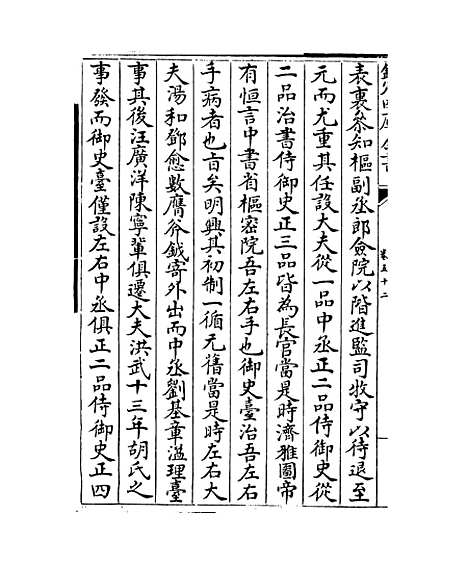 欽定四庫全書
卷五十二
表裏參知樞副丞郎僉院以階進監司牧守以待退至
元而尤重其任設大夫從一品中丞正二品侍御史從
二品治書侍御史正三品皆為長官當是時濟雅圖帝
有恒言中書省樞密院吾左右手也御史臺治吾左右
手病者也旨矣明興其初制一循元舊當是時左右大
夫湯和鄧愈數膺斧鉞寄外出而中丞劉基章溢理臺
事其後汪廣洋陳寧輩俱遷大夫洪武十三年胡氏之
事發而御史臺僅設左右中丞俱正二品侍御史正四